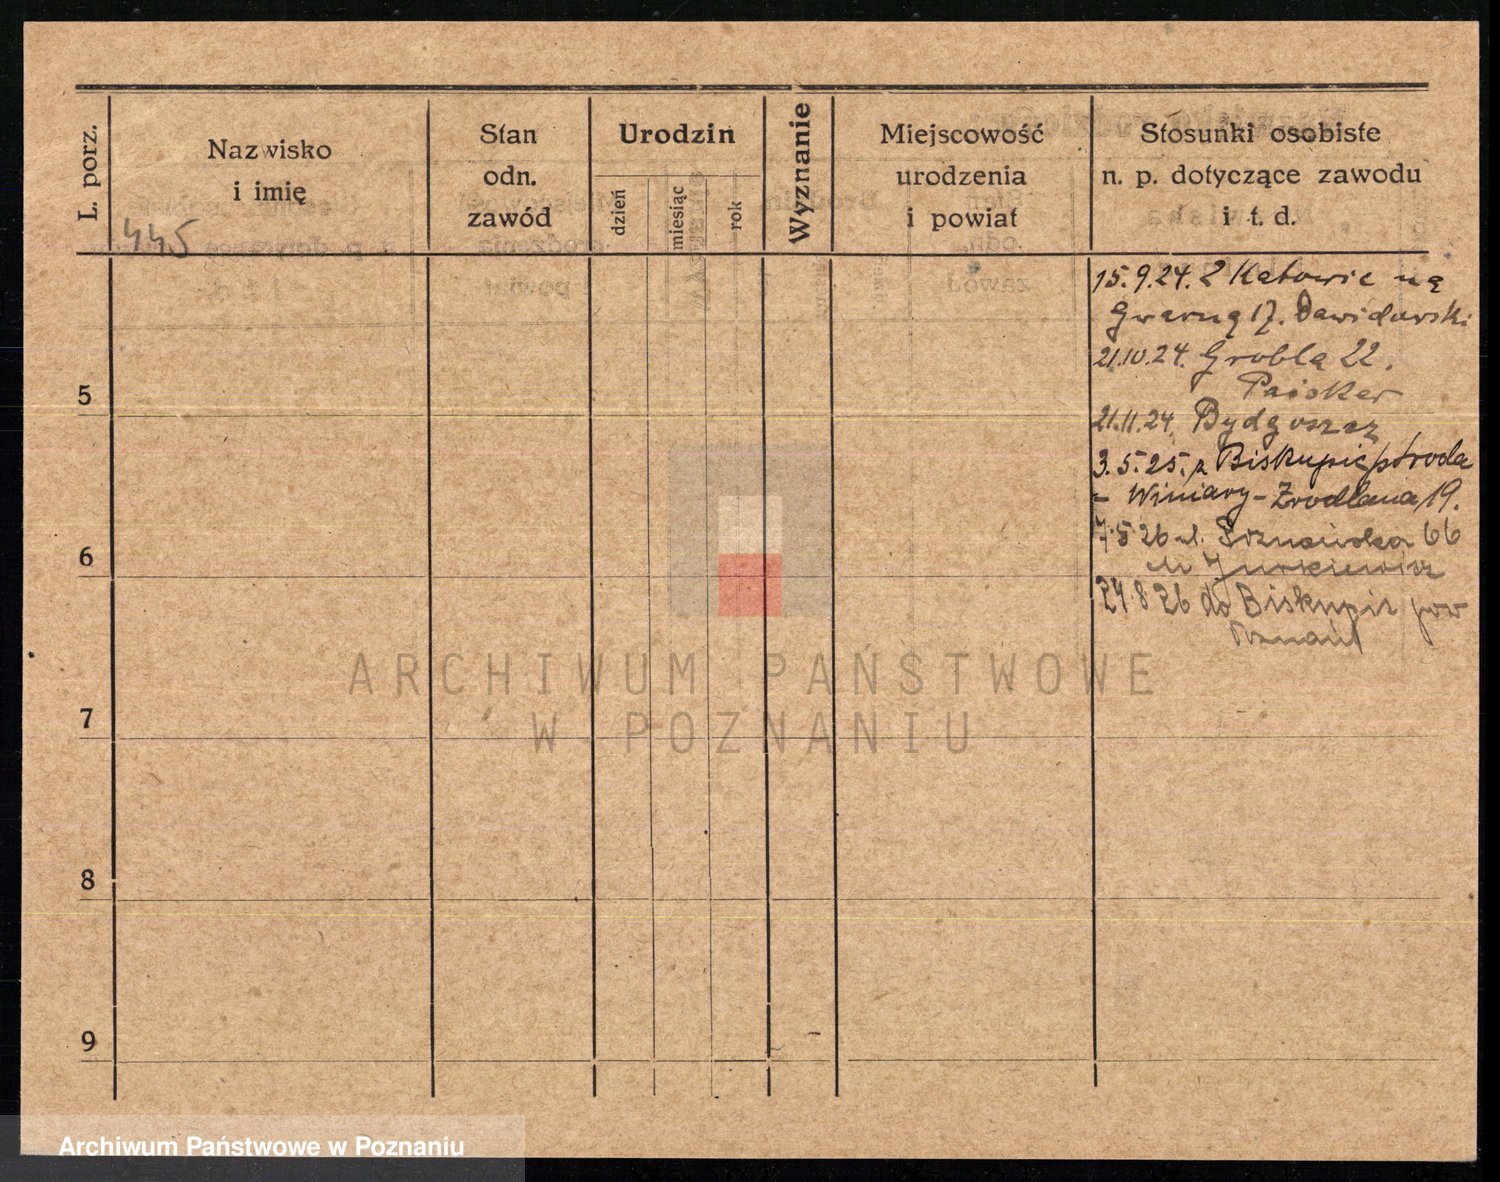 L. porz.
Nazwisko
i imię
Stan
odn.
zawód
Urodzin
dzień
miesiąc
rok
Wyznanie
Miejscowość
urodzenia
i powiat
Stosunki osobiste
n. p. dotyczące zawodu
i t. d.
445
15.9.24. z Katowic na
Gwarną 17. Dawidowski
21.10.24. Grobla 22.
Paisker
21.11.24. Bydgoszcz
3.5.25. z Biskupic/Środa
- Winiary - Zrodlana 19.
7.5 26 ul. 66
Jurkiewicz
24.8.26 do Biskupic pow
Poznań
5
6
7
8
9
ARCHIWUM PAŃSTWOWE
W POZNANIU
Archiwum Państwowe w Poznaniu